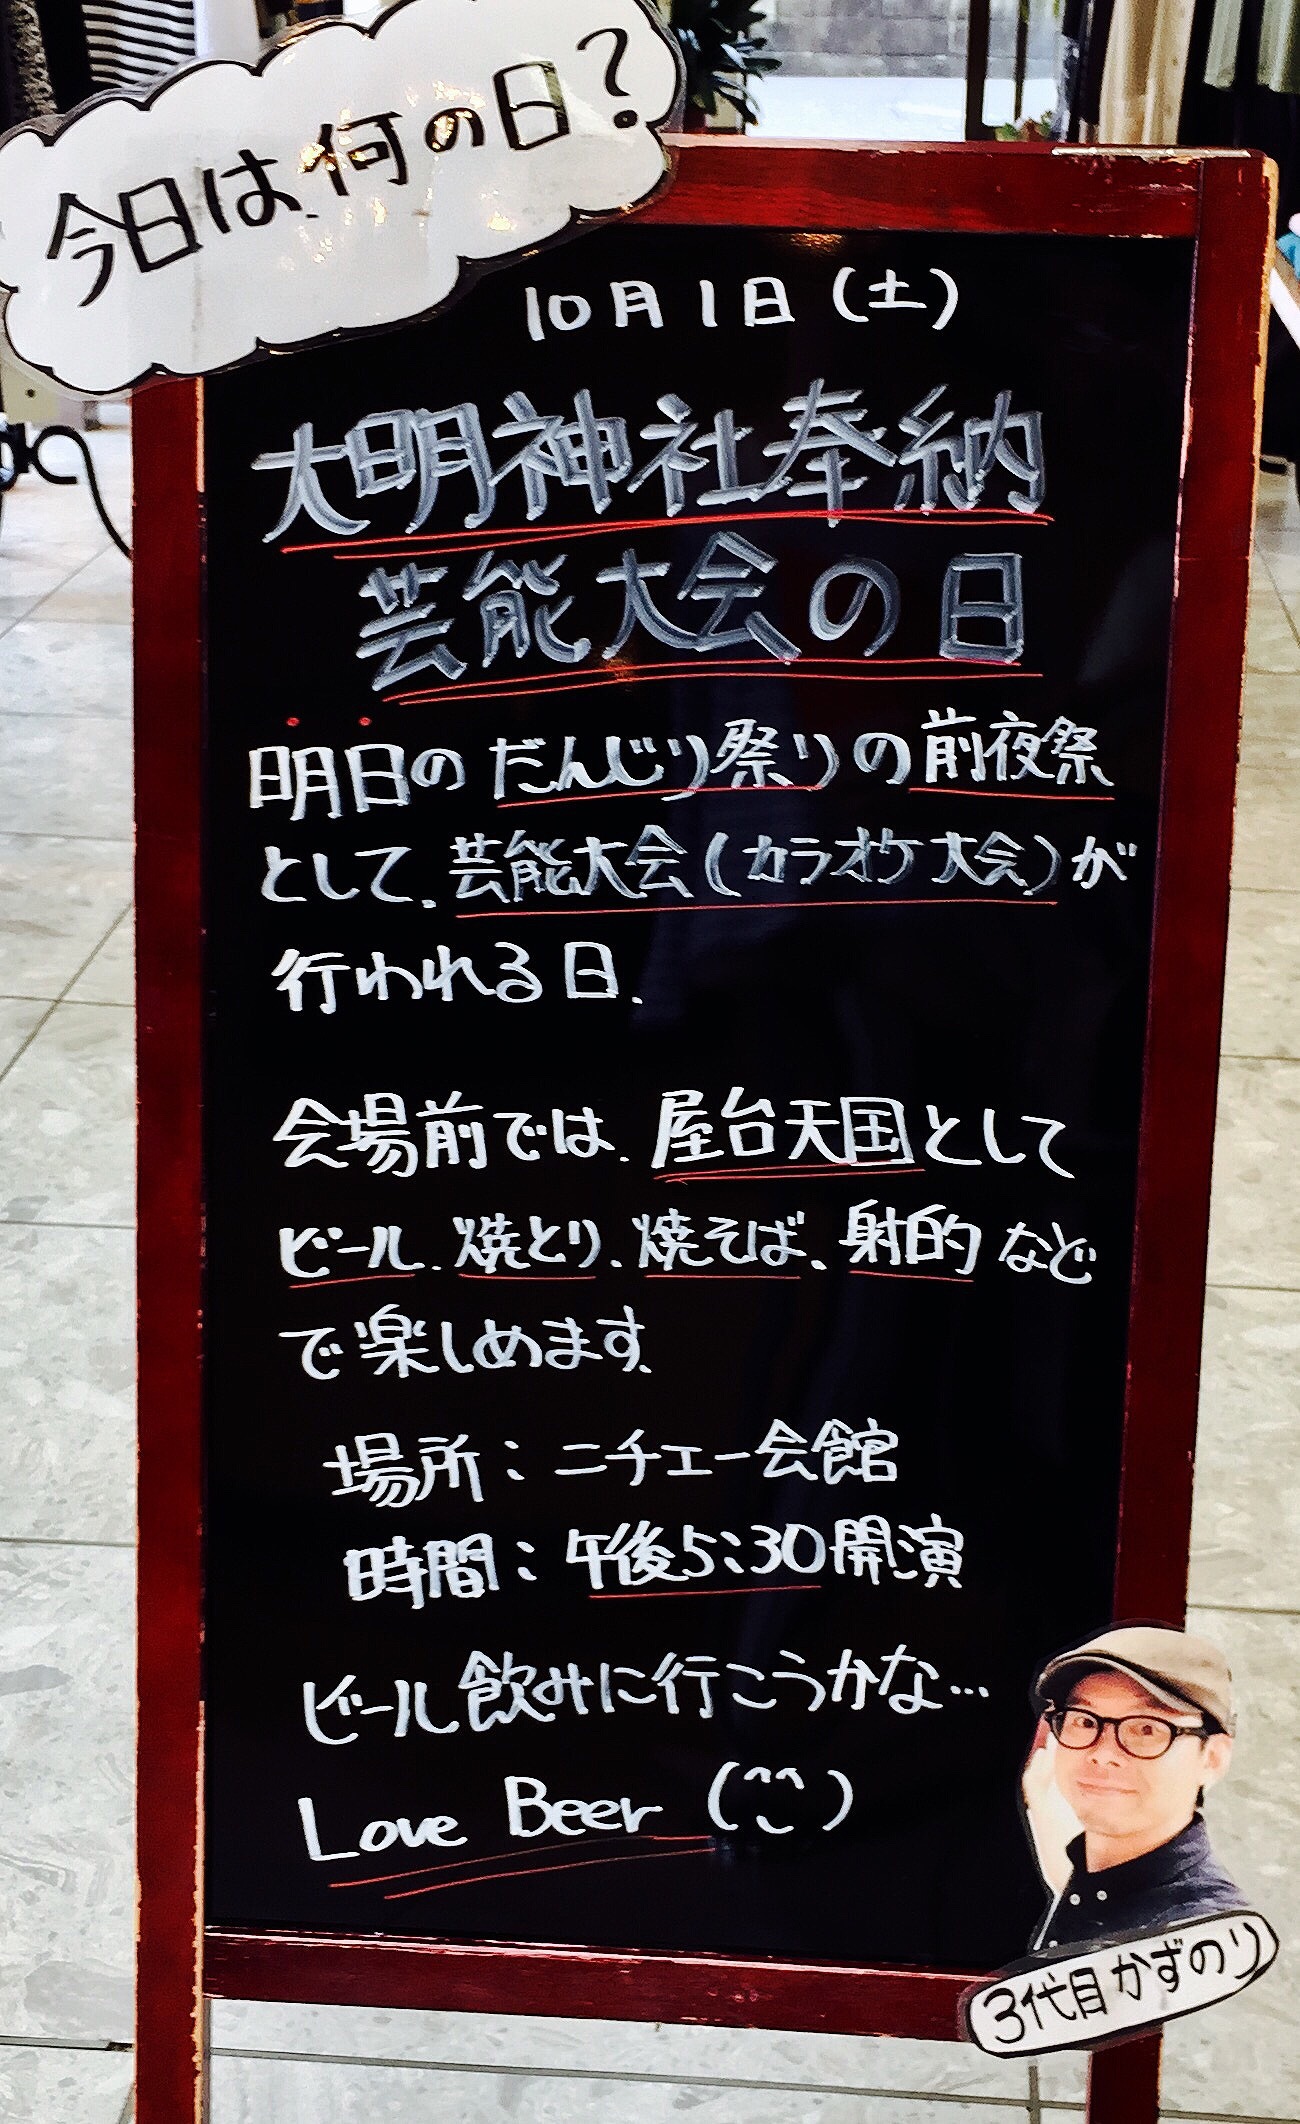 今日は、何の日?
10月1日(土)
大明神社奉納
芸能大会の日
明日のだんじり祭りの前夜祭
として、芸能大会(カラオケ大会)が
行われる日。
会場前では、屋台天国として
ビール、焼とり、焼そば、射的など
で楽しめます。
場所:ニチエー会館
時間:午後5:30開演
ビール飲みに行こうかな…
Love Beer (^^)
3代目かずのり